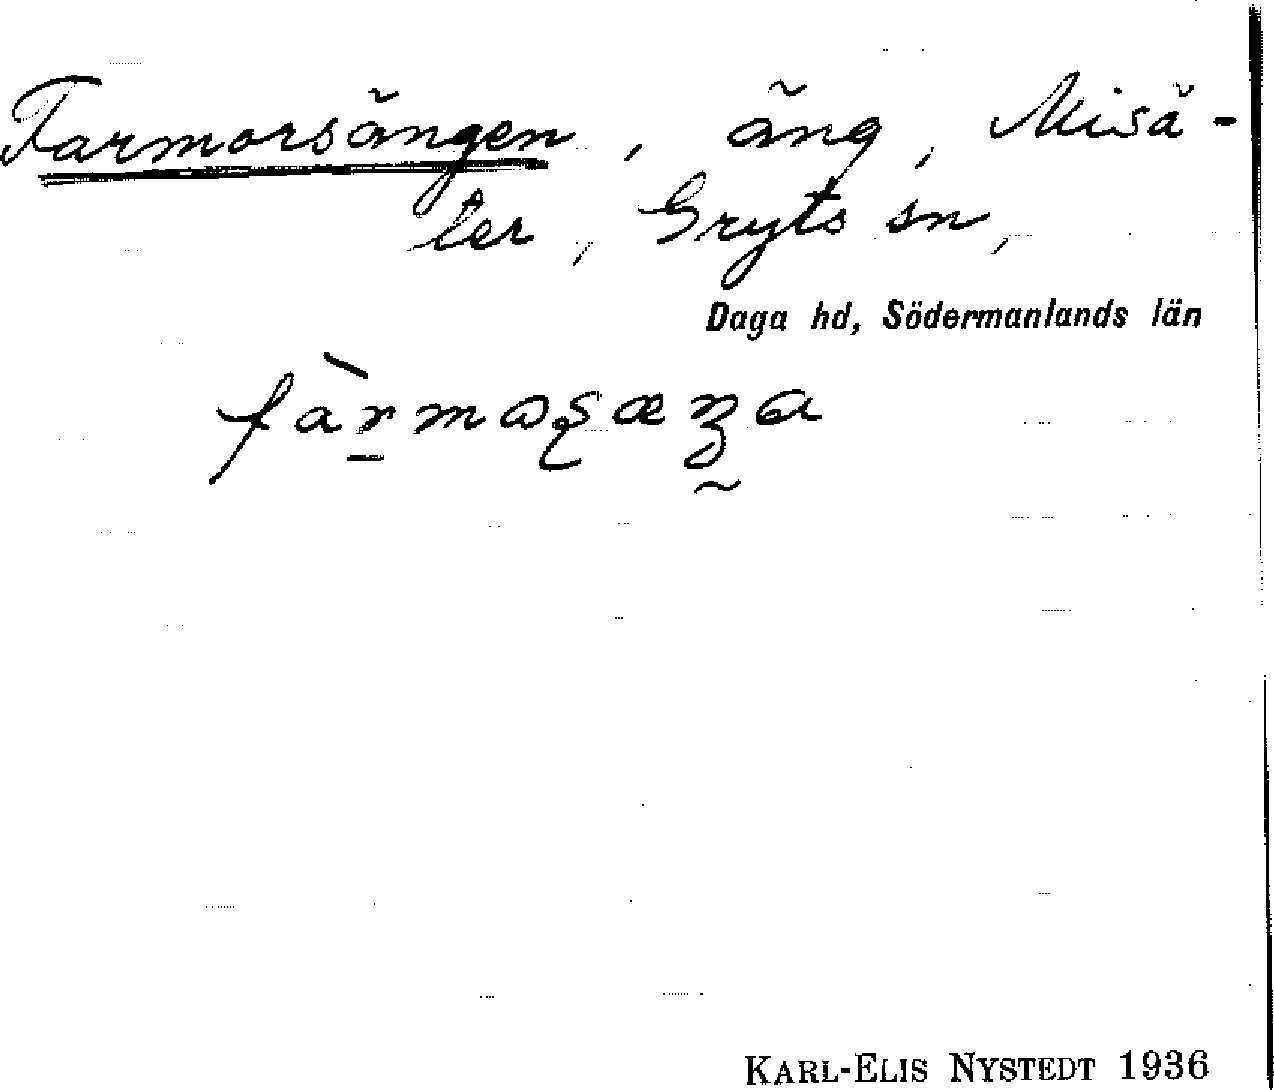 Farmorsängen, äng, Misä-
ter, Gryts sn,
Daga hd, Södermanlands län
KARL-ELIS NYSTEDT 1936